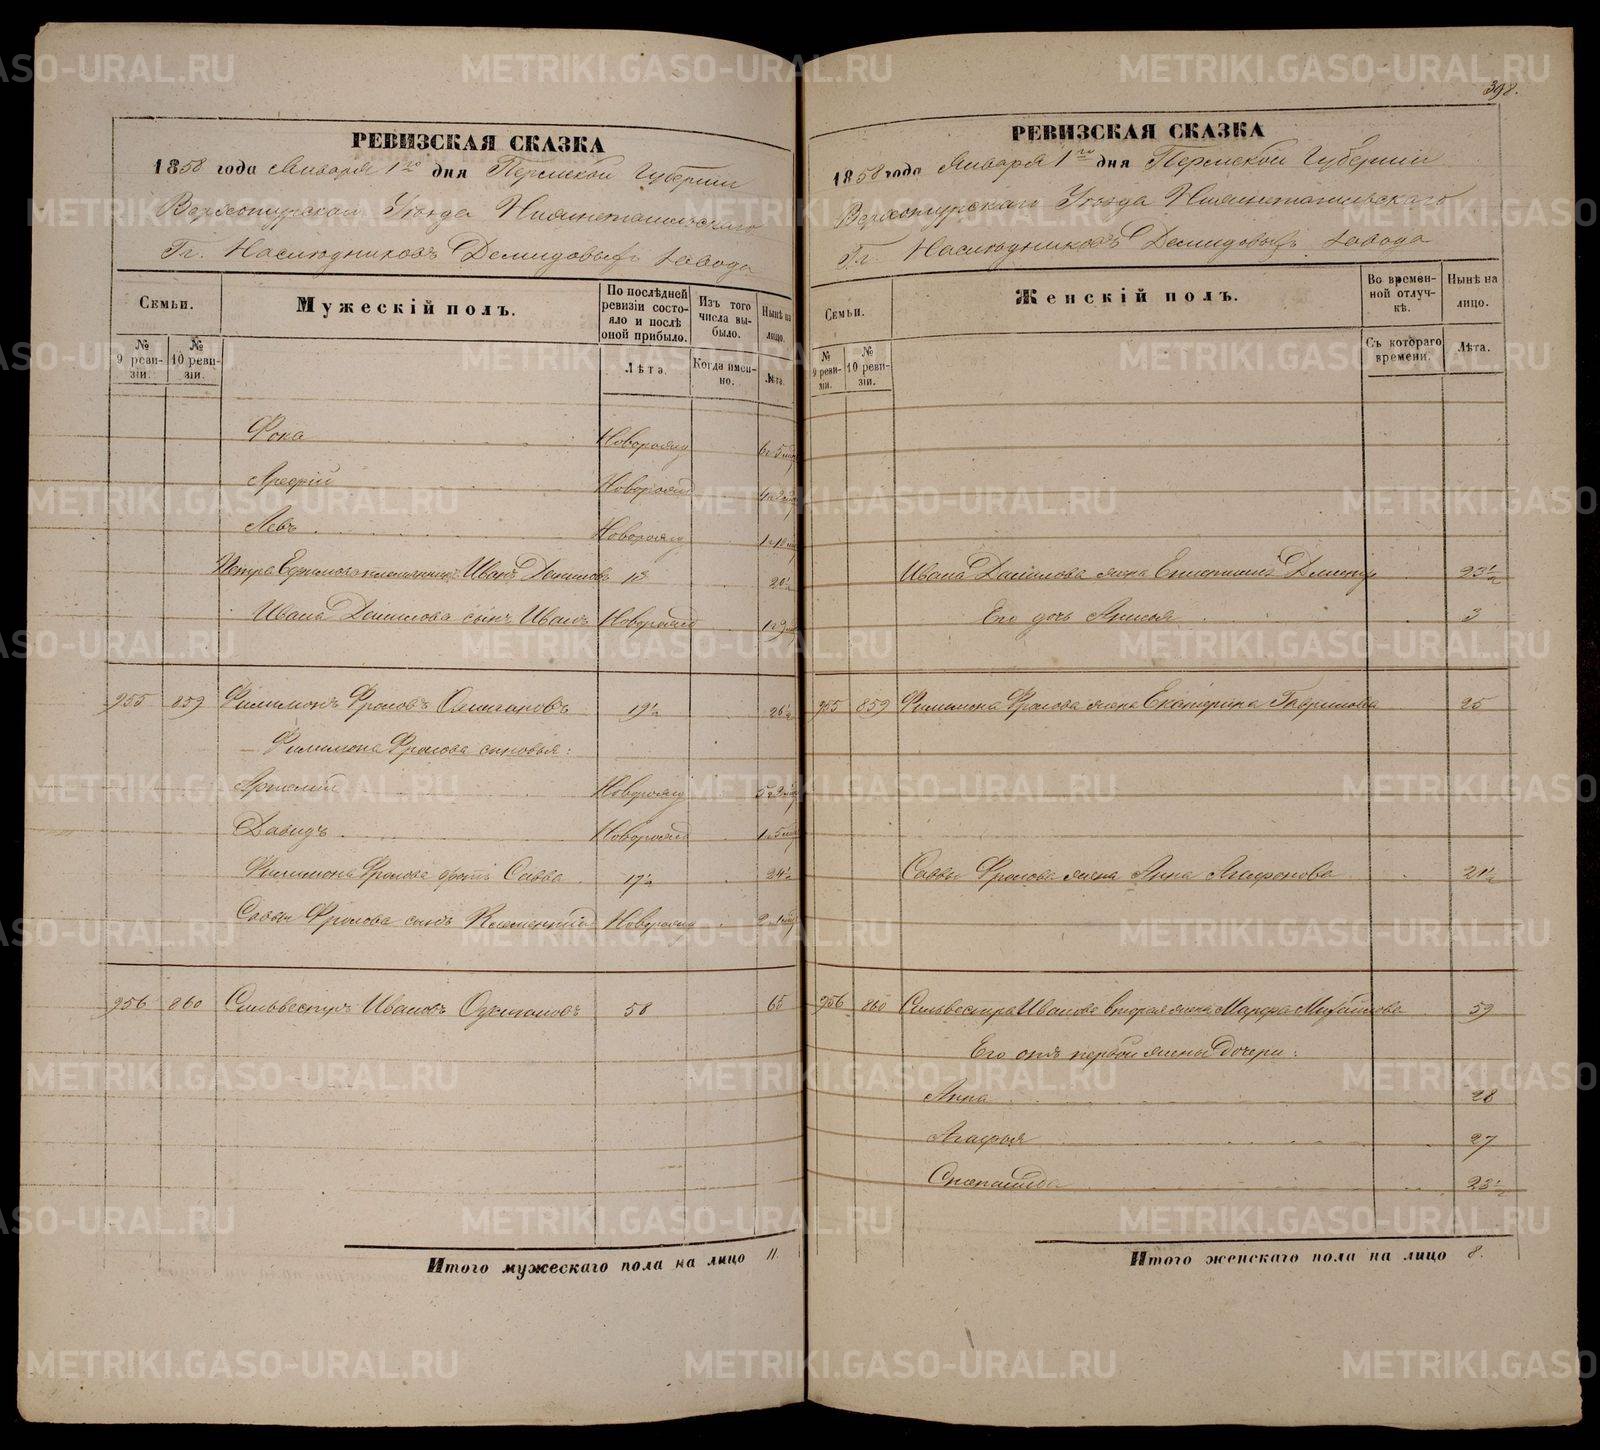 398.
РЕВИЗСКАЯ СКАЗКА
1858 года Января 1го дня Пермской Губернии
Верхотурскаго Уѣзда Нижнетагильскаго
Гг. Наслѣдниковъ Демидовыхъ завода
Семьи.
№ 9 ревизіи.
№ 10 ревизіи.
Мужескій полъ.
По послѣдней ревизіи состояло и послѣ оной прибыло.
Лѣта.
Изъ того числа выбыло.
Когда именно.
Нынѣ на лицо.
Лѣта.
Фока Новорожд 6 г 5 мц
Арефій Новорожд
Левъ Новорожд
Иванъ Даниловъ 20½
Ивана Данилова сынъ Иванъ Новорожд 1 г 9 мц
955 859 Филимонъ Фроловъ Ожигановъ 19½ 26½
Филимона Фролова сыновья:
Новорожд 5 г 3 мц
Давидъ Новорожд 1 г 5 мц
Филимона Фролова братъ Савва 17½ 24½
Саввы Фролова сынъ Новорожд 2 г 1 мц
956 860 Сильвестръ Ивановъ Ожигановъ 58 65
Итого мужескаго пола на лицо 11.
РЕВИЗСКАЯ СКАЗКА
1858 года Января 1го дня Пермской Губерніи
Верхотурскаго Уѣзда Нижнетагильскаго
Гг. Наслѣдниковъ Демидовыхъ завода
Семьи.
№ 9 ревизіи.
№ 10 ревизіи.
Женскій полъ.
Во временной отлучкѣ.
Съ котораго времени.
Нынѣ на лицо.
Лѣта.
Ивана Данилова жена 23½
Его дочь Анисья 3
955 859 Филимона Фролова жена Екатерина Гаврилова 25
Саввы Фролова жена Анна Агафонова 21½
956 860 Сильвестра Иванова вторая жена Марфа Михайлова 59
Его отъ первой жены дочери:
Анна 28
Агафья 27
Степанида 23½
Итого женскаго пола на лицо 8.
METRIKI.GASO-URAL.RU